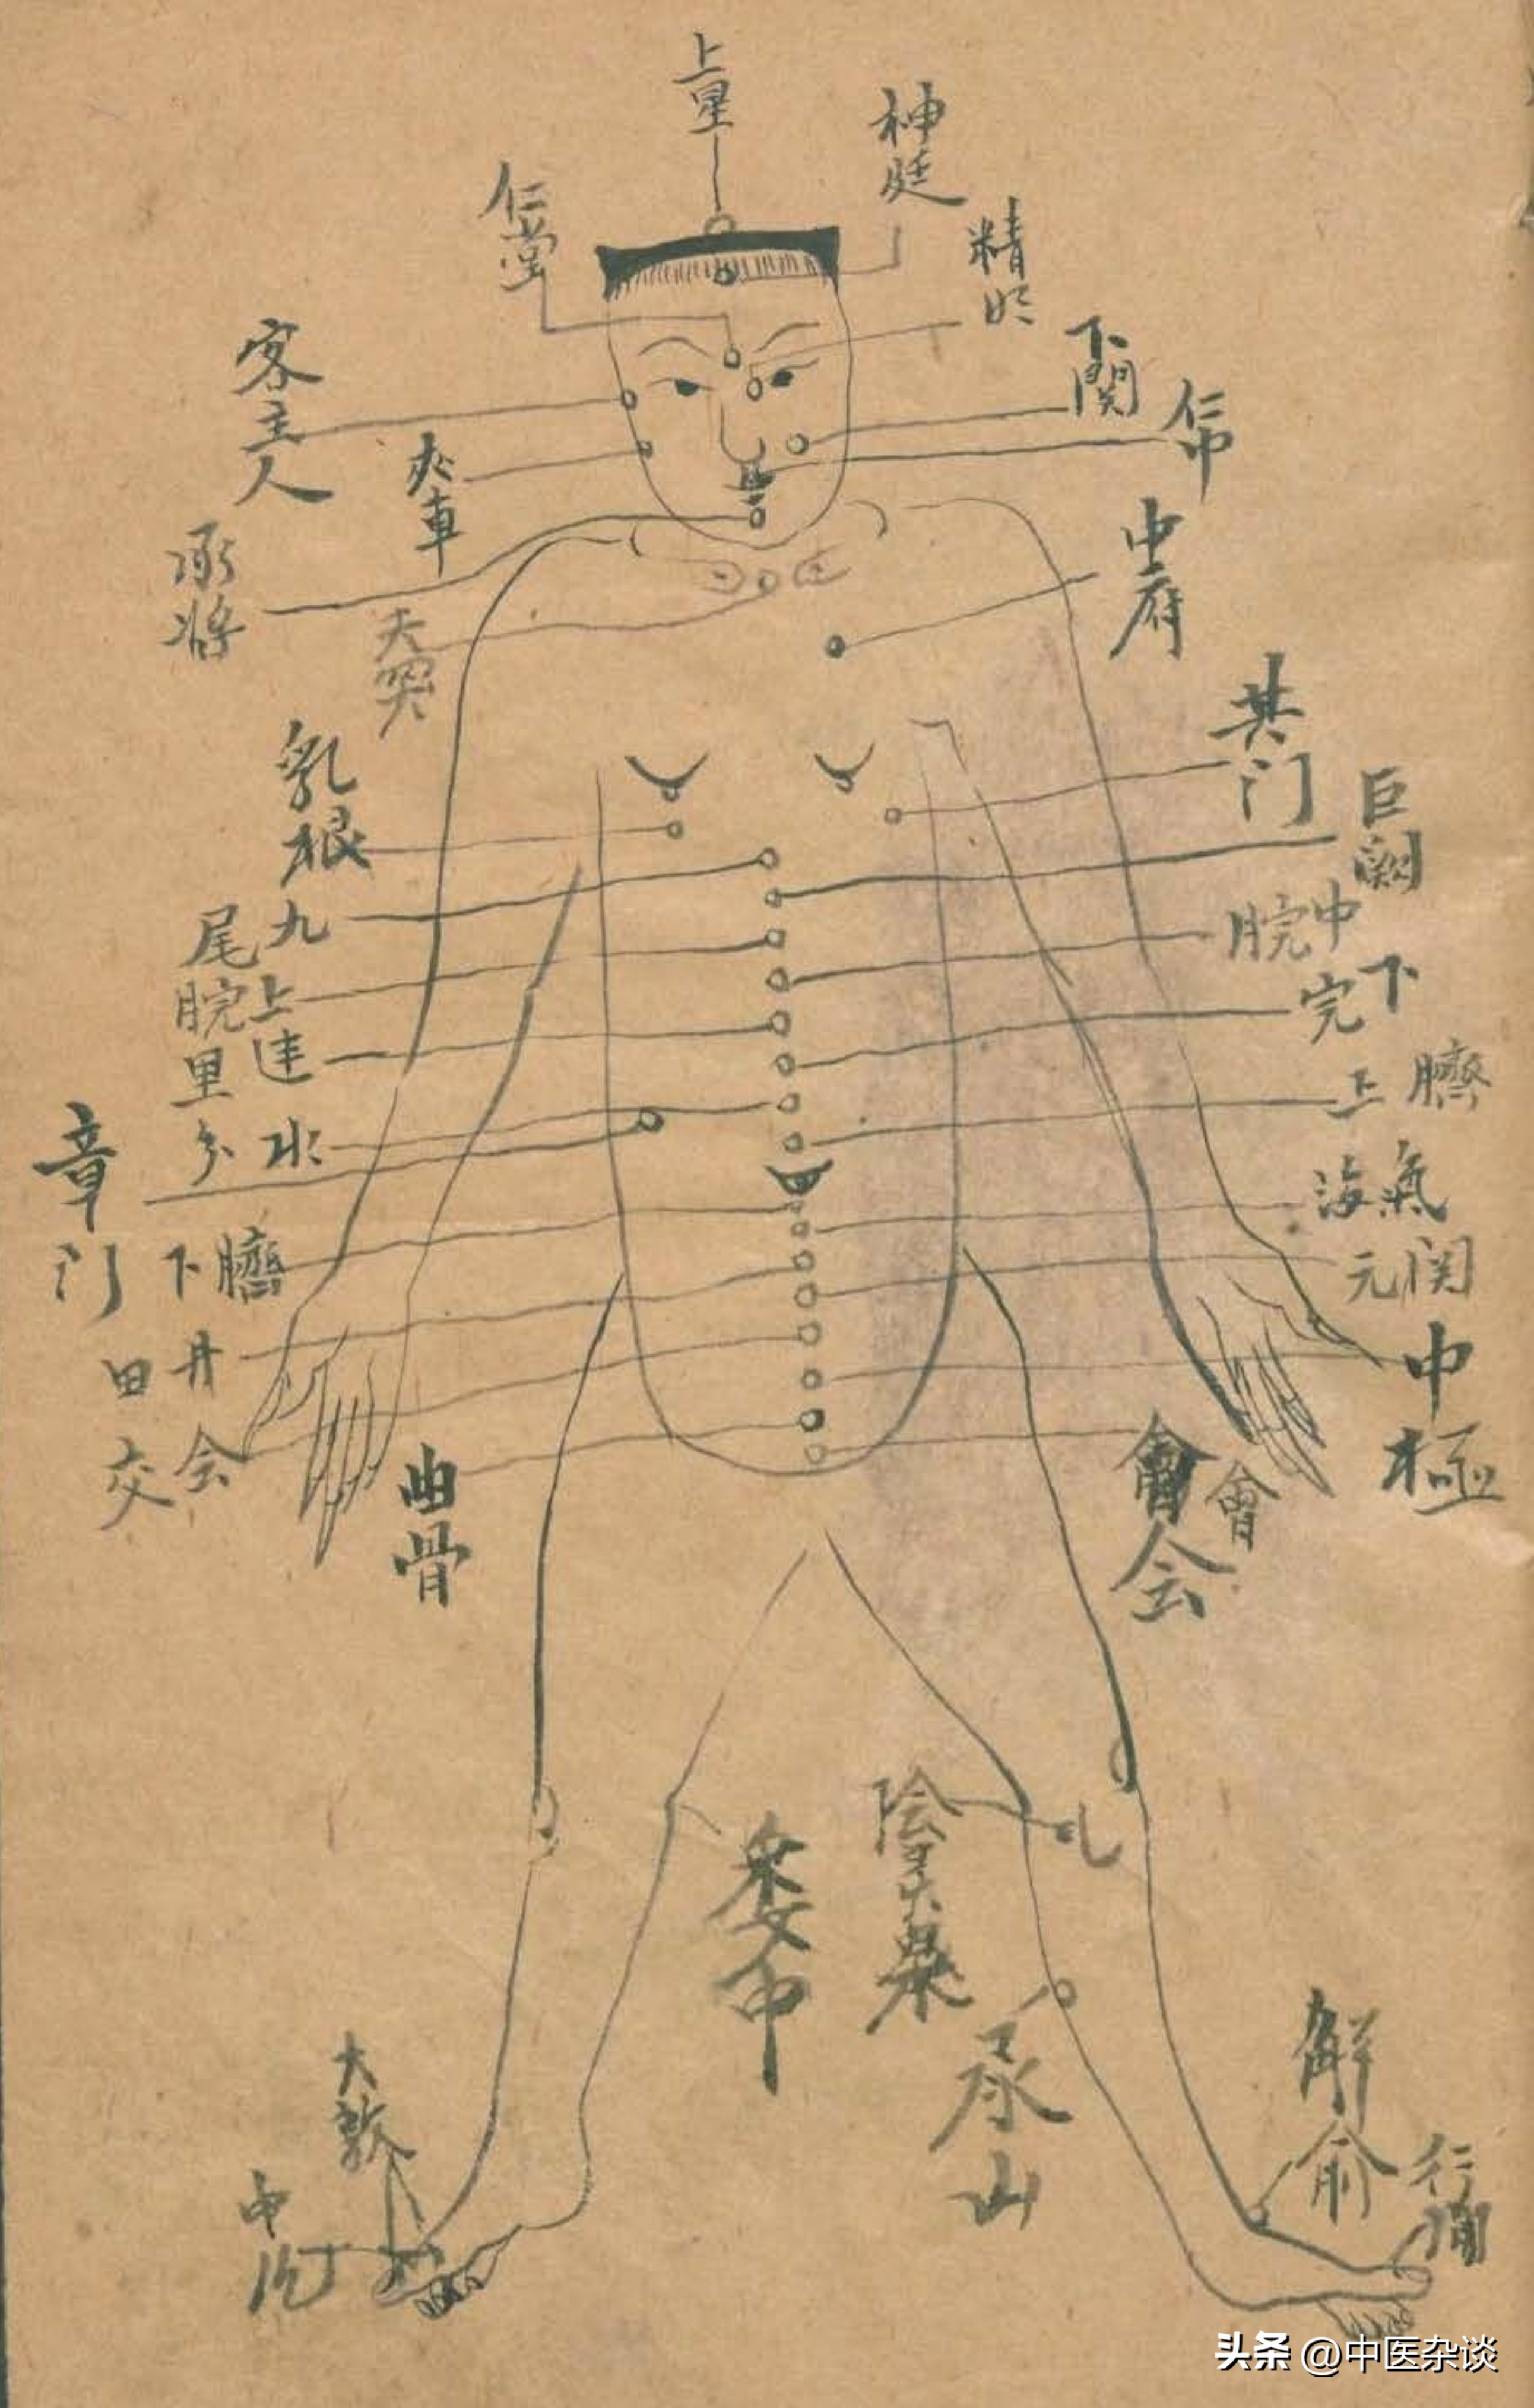 上星
神廷
仁堂
精明
客主人
下關
仁中
夾車
承將
中府
天突
乳根
共门
巨闕
九尾
中脘
上脘
下完
建里
臍上
水分
章门
氣海
臍下
関元
井田
中極
会交
曲骨
會
會
会
委中
陰
泉
承山
大敦
中
解俞
行間
头条 @中医杂谈